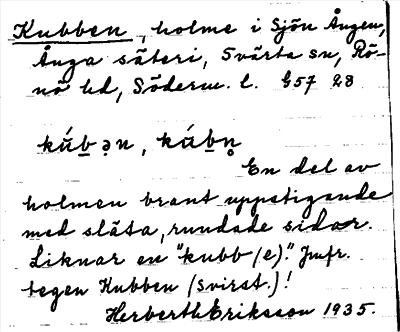 Kubben, holme i Sjön Ången,
Ånga säteri, Svärta sn, Rö-
nö hd, Söderm. l. G57 28
kú̱bən, kúbn̥
En del av
holmen brant uppstigande
med släta, rundade sidor.
Liknar en "kubb(e)". Jmfr.
tegen Kubben (Svirst.)!
Herberth Eriksson 1935.